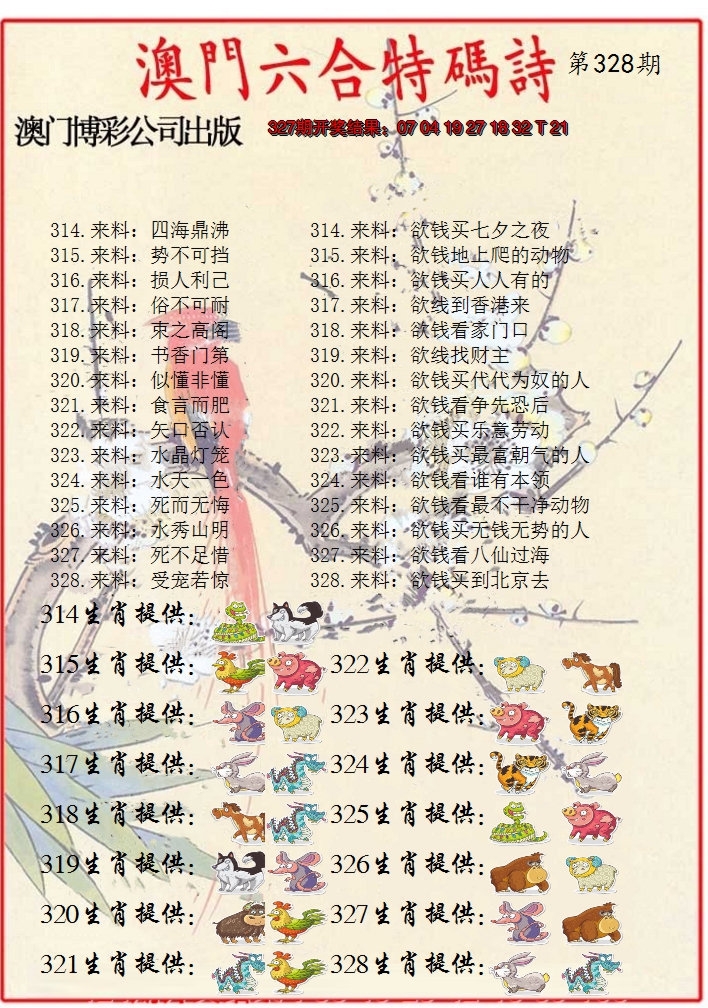 澳門六合特碼詩 第328期
澳门博彩公司出版 327期开奖结果：07 04 19 27 18 32 T 21
314.来料：四海鼎沸 314.来料：欲钱买七夕之夜
315.来料：势不可挡 315.来料：欲钱地上爬的动物
316.来料：损人利己 316.来料：欲钱买人人有的
317.来料：俗不可耐 317.来料：欲线到香港来
318.来料：束之高阁 318.来料：欲钱看家门口
319.来料：书香门第 319.来料：欲线找财主
320.来料：似懂非懂 320.来料：欲钱买代代为奴的人
321.来料：食言而肥 321.来料：欲钱看争先恐后
322.来料：矢口否认 322.来料：欲钱买乐意劳动
323.来料：水晶灯笼 323.来料：欲钱买最富朝气的人
324.来料：水天一色 324.来料：欲钱看谁有本领
325.来料：死而无悔 325.来料：欲钱看最不干净动物
326.来料：水秀山明 326.来料：欲钱买无钱无势的人
327.来料：死不足惜 327.来料：欲钱看八仙过海
328.来料：受宠若惊 328.来料：欲钱买到北京去
314生肖提供：
315生肖提供： 322生肖提供：
316生肖提供： 323生肖提供：
317生肖提供： 324生肖提供：
318生肖提供： 325生肖提供：
319生肖提供： 326生肖提供：
320生肖提供： 327生肖提供：
321生肖提供： 328生肖提供：